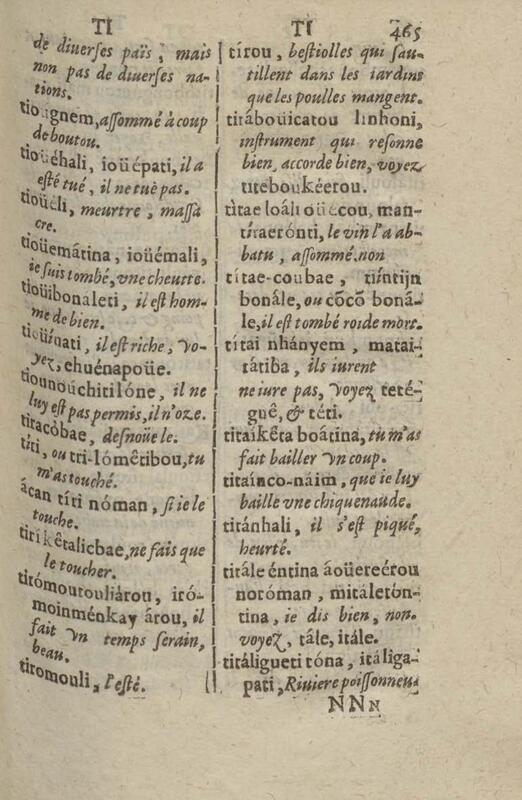 TI
TI
465
de diuerſes païs, mais
non pas de diuerſes na-
tions.
tioüignem, aſſommé à coup
de boutou.
tioüéhali, ioüépati, il a
eſté tué, il ne tuè pas.
tioüéli, meurtre, maſſa
cre.
tioüemátina, ioüémali,
ie ſuis tombé, vne cheutte.
tioüibonaleti, il eſt hom-
me de bien.
tioüínati, il eſt riche, vo-
yez, ehuénapoüe.
tiounoúchitilóne, il ne
luy eſt pas permis, il n'oze.
tiracòbae, deſnoüe le.
tíri, ou tri-lómêtibou, tu
m'as touché.
acan tíri nóman, ſi ie le
touche.
tirikêtalicbae, ne fais que
le toucher.
tirómoutouliárou, iró-
moinménkay árou, il
fait vn temps ſerain,
beau.
tiromouli, l'eſté.
tírou, beſtiolles qui ſau-
tillent dans les iardins
que les poulles mangent.
titáboüicatou linhoni,
inſtrument qui reſonne
bien, accorde bien, voyez
titeboukéerou.
tìtae loáli oüecou, man-
tíraerónti, le vin l'a ab-
batu, aſſommé. non
títae-coubae, tiíntijn
bonále, ou còcò boná-
le, il eſt tombé roide mort.
títai nhányem, matai-
tátiba, ils iurent
ne iure pas, voyez teté-
guê, & téti.
titaíkêta boátina, tu m'as
fait bailler vn coup.
titaínco-náim, que ie luy
baille vne chiquenaude.
titánhali, il s'eſt piqué,
heurté.
titále éntina áoüereérou
noróman, mitáletón-
tina, ie dis bien, non.
voyez, tále, itále.
titáligueti tóna, itáliga-
pati, Riuiere poiſſonneu-
NNn